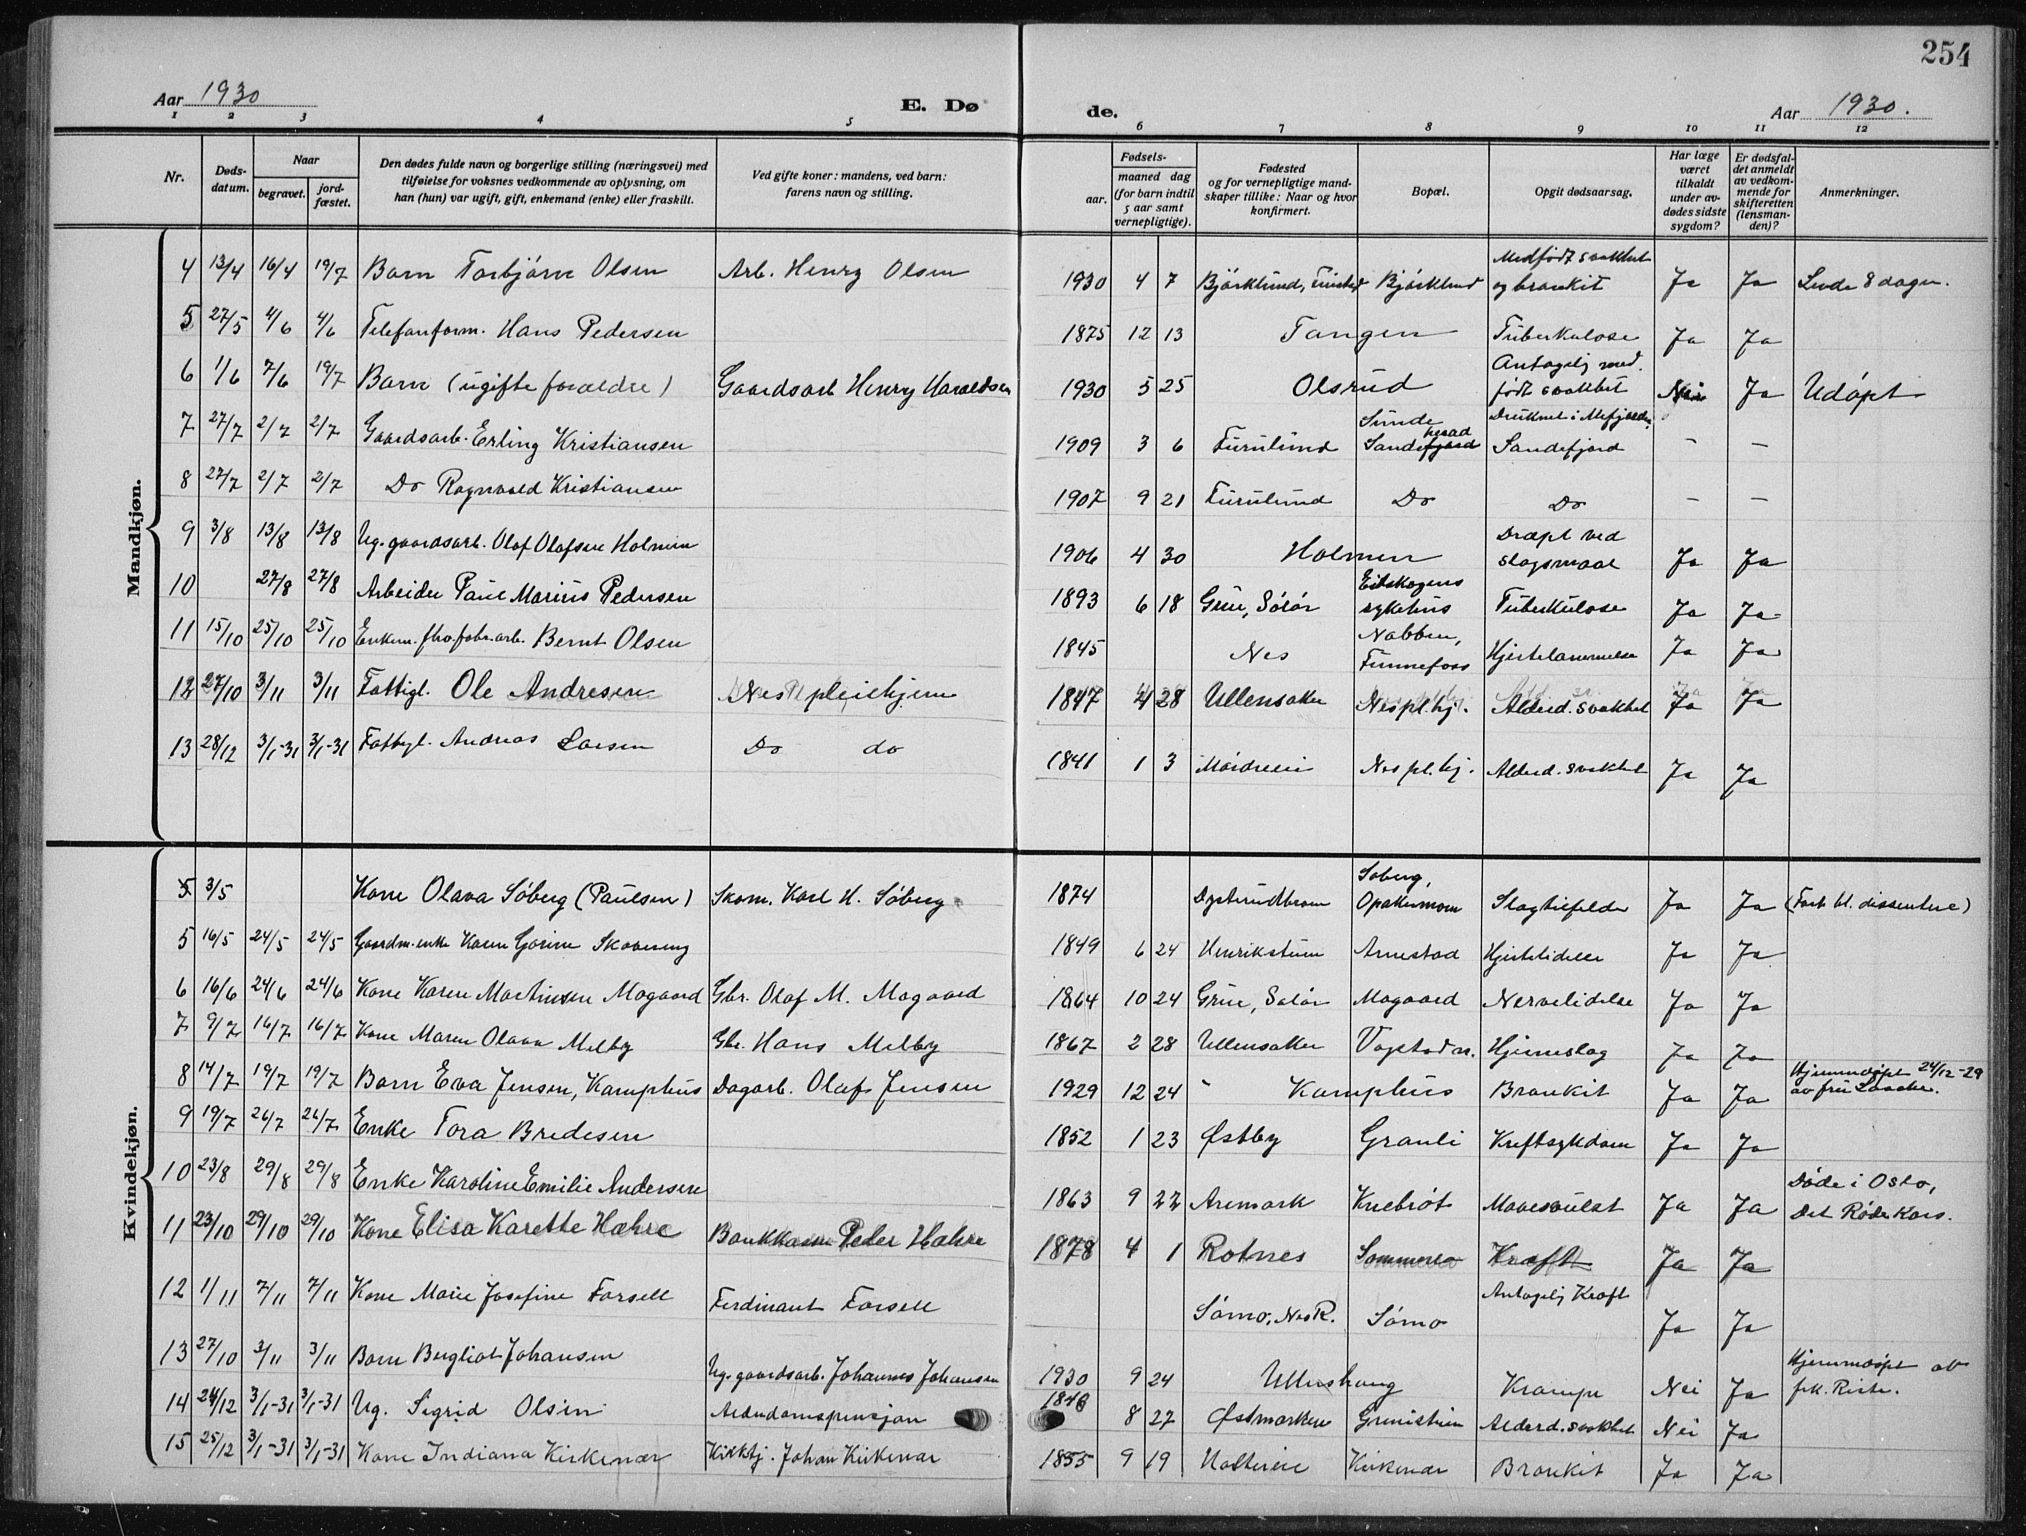 254
Aar 1930
E. Dø
de.
Aar 1930.
1 2 3 4 5 6 7 8 9 10 11 12
Nr.
Døds-
datum.
Naar
begravet.
jord-
fæstet.
Den dødes fulde navn og borgerlige stilling (næringsvei) med
tilføielse for voksnes vedkommende av oplysning, om
han (hun) var ugift, gift, enkemand (enke) eller fraskilt.
Ved gifte koner: mandens, ved barn:
farens navn og stilling.
Fødsels-
aar.
maaned dag
(for barn indtil
5 aar samt
vernepligtige).
Fødested
og for vernepligtige mand-
skaper tillike: Naar og hvor
konfirmert.
Bopæl.
Opgit dødsaarsag.
Har læge
været
tilkaldt
under av-
dødes sidste
sygdom?
Er dødsfal-
det anmeldt
av vedkom-
mende for
skifteretten
(lensman-
den)?
Anmerkninger.
Mandkjøn.
4 13/4 16/4 19/7 Barn Torbjørn Olsen Arb. Henry Olsen 1930 4 7 Bjørklund, Bjørklund Medfødt svakhet og bronkit Ja Ja Levde 8 dager.
5 27/5 4/6 4/6 Telefonform. Hans Pedersen 1875 12 13 Tangen Tuberkulose Ja Ja
6 1/6 7/6 19/7 Barn (ugifte forældre) Gaardsarb Henry Haraldsen 1930 5 25 Olsrud Antagelig med. født svakhet Nei Ja Udøpt
7 27/7 2/7 2/7 Gaardsarb. Erling Kristiansen 1909 3 6 Furulund Sunde Sandefjord herad Druknet i Mefjorden Sandefjord - -
8 27/7 2/7 2/7 Do Ragnvald Kristiansen 1907 9 21 Furulund Do Do - -
9 3/8 13/8 13/8 Ug. gaardsarb. Olaf Olafsen Holmen 1906 4 30 Holmen Dræpt ved slagsmaal Ja Ja
10 27/8 27/8 Arbeider Paul Marius Pedersen 1893 6 18 Grue, Solør Eidskogens sykehus Tuberkulose Ja Ja
11 15/10 25/10 25/10 Enkem. fhv. fabr. arb. Bernt Olsen 1845 Nes Nabben, Funnefoss Hjertelammelse Ja Ja
12 27/10 3/11 3/11 Fattigl. Ole Andresen Nes pleiehjem 1847 4 28 Ullensaker Nes pl. hj. Alderd. svakhet Ja Ja
13 28/12 3/1-31 3/1-31 Fattigl. Andreas Larsen Do do 1841 1 3 Mordreeie Nes pl. hj. Alderd. svakhet Ja Ja
Kvindekjøn.
5 3/5 Kone Olava Søberg (Paulsen) Skom. Karl H. Søberg 1874 Dysterudbraen Søberg, Opakermoen Slagtilfelde Ja Ja (Ført bl. dissentere)
5 16/5 24/5 24/5 Gaardm. enke Karen Gorine Skovereng 1849 6 24 Henrikstuen Arnestad Hjertelidelse Ja Ja
6 16/6 24/6 24/6 Kone Karen Martinsen Mogaard Gbr. Olaf M. Mogaard 1864 10 24 Grue, Solør Mogaard Nervelidelse Ja Ja
7 9/7 16/7 16/7 Kone Maren Olava Melby Gbr. Hans Melby 1867 2 28 Ullensaker Vogstad n. Hjerneslag Ja Ja
8 14/7 19/7 19/7 Barn Eva Jensen, Kamphus Dagarb. Olaf Jensen 1929 12 24 Kamphus Bronkit Ja Ja Hjemmedøpt 24/12-29 av fru
9 19/7 26/7 26/7 Enke Tora Bredesen 1852 1 23 Østby Granli Kreftsykdom Ja Ja
10 23/8 29/8 29/8 Enke Karoline Emilie Andersen 1863 9 22 Aremark Knebrøt Mavesvulst Ja Ja Døde i Oslo, Det Røde Kors.
11 23/10 29/10 29/10 Kone Elisa Karette Hæhre Bankkasser Peder Hæhre 1878 4 1 Rotnes Sommerro Kræft Ja Ja
12 1/11 7/11 7/11 Kone Marie Josefine Forsell Ferdinant Forsell Sørmo, Nes R. Sørmo Antagelig Kræft Ja Ja
13 27/10 3/11 3/11 Barn Bergliot Johansen Ug. gaardsarb. Johannes Johansen 1930 9 24 Ullershaug Krampe Nei Ja Hjemmedøpt av frk. Riste.
14 24/12 3/1-31 3/1-31 Ug. Sigrid Olsen Alderdomspensjon 1846 8 27 Østmarken Alderd. svakhet Nei Ja
15 25/12 3/1-31 3/1-31 Kone Indiana Kirkenær Kirktj. Johan Kirkenær 1855 9 19 Kirkenær Bronkit Ja Ja